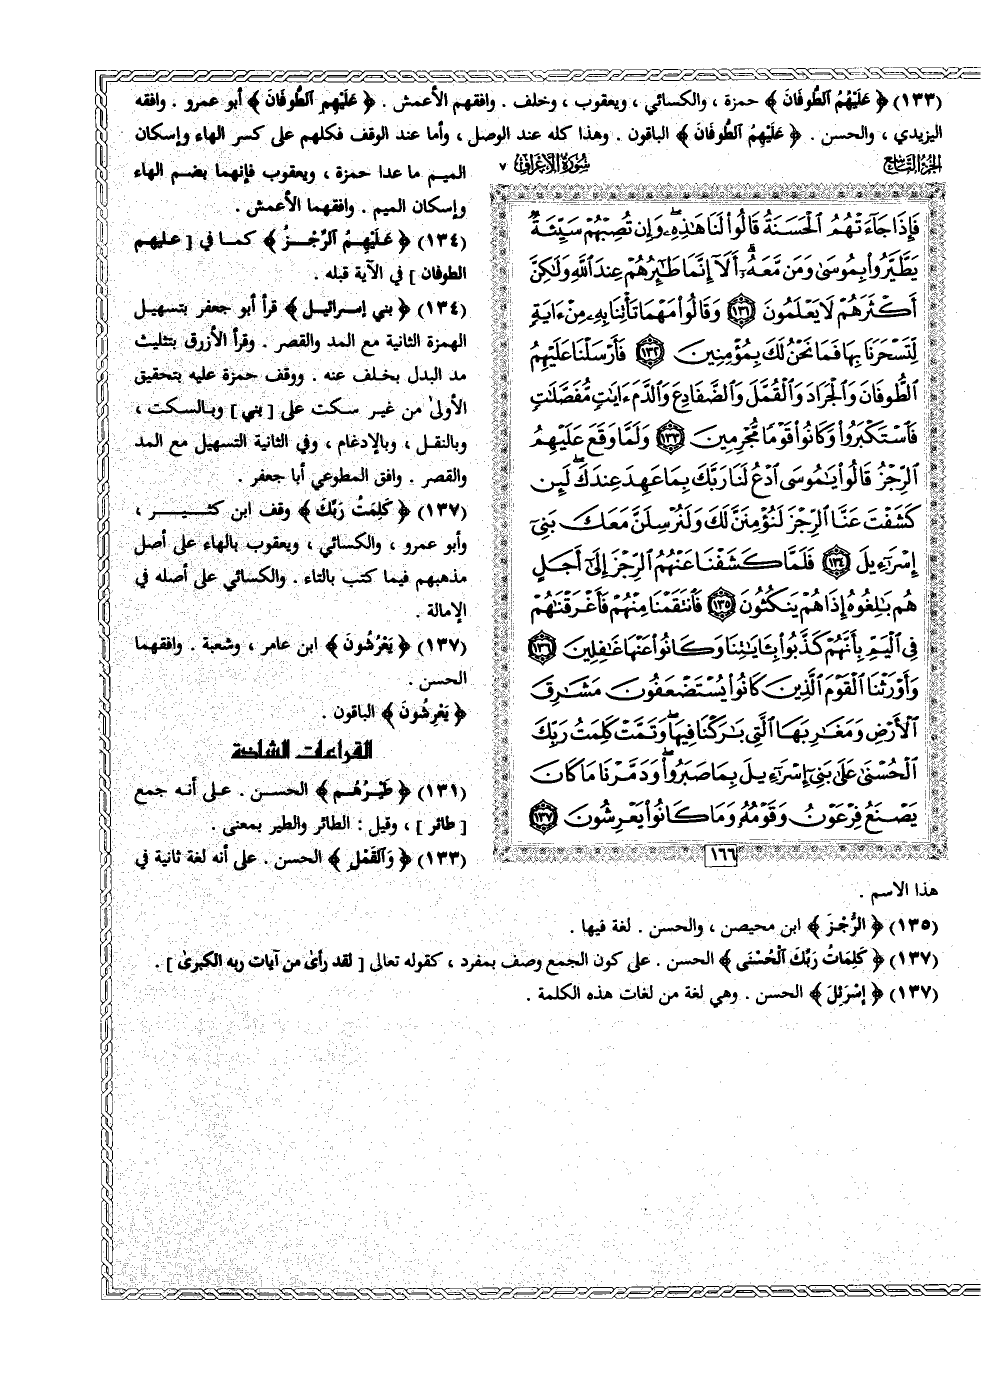 (١٣٣) ﴿ عَلَيْهُمُ الطُّوفَانَ ﴾ حمزة ، والكسائي ، ويعقوب ، وخلف . وافقهم الأعمش . ﴿ عَلَيْهِمِ الطُّوفَانَ ﴾ أبو عمرو . وافقه
اليزيدي ، والحسن . ﴿ عَلَيْهِمُ الطُّوفَانَ ﴾ الباقون . وهذا كله عند الوصل ، وأما عند الوقف فكلهم على كسر الهاء وإسكان
الجزء التاسع
سورة الأعراف ٧
فَإِذَا جَآءَتْهُمُ ٱلْحَسَنَةُ قَالُوا۟ لَنَا هَٰذِهِۦ ۖ وَإِن تُصِبْهُمْ سَيِّئَةٌ
يَطَّيَّرُوا۟ بِمُوسَىٰ وَمَن مَّعَهُۥٓ ۗ أَلَآ إِنَّمَا طَٰٓئِرُهُمْ عِندَ ٱللَّهِ وَلَٰكِنَّ
أَكْثَرَهُمْ لَا يَعْلَمُونَ ١٣١ وَقَالُوا۟ مَهْمَا تَأْتِنَا بِهِۦ مِنْ ءَايَةٍ
لِّتَسْحَرَنَا بِهَا فَمَا نَحْنُ لَكَ بِمُؤْمِنِينَ ١٣٢ فَأَرْسَلْنَا عَلَيْهِمُ
ٱلطُّوفَانَ وَٱلْجَرَادَ وَٱلْقُمَّلَ وَٱلضَّفَادِعَ وَٱلدَّمَ ءَايَٰتٍ مُّفَصَّلَٰتٍ
فَٱسْتَكْبَرُوا۟ وَكَانُوا۟ قَوْمًا مُّجْرِمِينَ ١٣٣ وَلَمَّا وَقَعَ عَلَيْهِمُ
ٱلرِّجْزُ قَالُوا۟ يَٰمُوسَى ٱدْعُ لَنَا رَبَّكَ بِمَا عَهِدَ عِندَكَ ۖ لَئِن
كَشَفْتَ عَنَّا ٱلرِّجْزَ لَنُؤْمِنَنَّ لَكَ وَلَنُرْسِلَنَّ مَعَكَ بَنِىٓ
إِسْرَٰٓءِيلَ ١٣٤ فَلَمَّا كَشَفْنَا عَنْهُمُ ٱلرِّجْزَ إِلَىٰٓ أَجَلٍ
هُم بَٰلِغُوهُ إِذَا هُمْ يَنكُثُونَ ١٣٥ فَٱنتَقَمْنَا مِنْهُمْ فَأَغْرَقْنَٰهُمْ
فِى ٱلْيَمِّ بِأَنَّهُمْ كَذَّبُوا۟ بِـَٔايَٰتِنَا وَكَانُوا۟ عَنْهَا غَٰفِلِينَ ١٣٦
وَأَوْرَثْنَا ٱلْقَوْمَ ٱلَّذِينَ كَانُوا۟ يُسْتَضْعَفُونَ مَشَٰرِقَ
ٱلْأَرْضِ وَمَغَٰرِبَهَا ٱلَّتِى بَٰرَكْنَا فِيهَا ۖ وَتَمَّتْ كَلِمَتُ رَبِّكَ
ٱلْحُسْنَىٰ عَلَىٰ بَنِىٓ إِسْرَٰٓءِيلَ بِمَا صَبَرُوا۟ ۖ وَدَمَّرْنَا مَا كَانَ
يَصْنَعُ فِرْعَوْنُ وَقَوْمُهُۥ وَمَا كَانُوا۟ يَعْرِشُونَ ١٣٧
١٦٦
الميم ما عدا حمزة ، ويعقوب فإنهما بضم الهاء
وإسكان الميم . وافقهما الأعمش .
(١٣٤) ﴿ عَلَيْهِمُ الرِّجْزُ ﴾ كما في [ عليهم
الطوفان ] في الآية قبله .
(١٣٤) ﴿ بني إسرائيل ﴾ قرأ أبو جعفر بتسهيل
الهمزة الثانية مع المد والقصر . وقرأ الأزرق بتثليث
مد البدل بخلف عنه . ووقف حمزة عليه بتحقيق
الأولىٰ من غير سكت على [ بني ] وبالسكت ،
وبالنقل ، وبالإدغام ، وفي الثانية التسهيل مع المد
والقصر . وافق المطوعي أبا جعفر .
(١٣٧) ﴿ كَلِمَتُ رَبِّكَ ﴾ وقف ابن كثير ،
وأبو عمرو ، والكسائي ، ويعقوب بالهاء على أصل
مذهبهم فيما كتب بالتاء . والكسائي على أصله في
الإمالة .
(١٣٧) ﴿ يَعْرُشُونَ ﴾ ابن عامر ، وشعبة . وافقهما
الحسن .
﴿ يَعْرِشُونَ ﴾ الباقون .
القراءات الشاذة
(١٣١) ﴿ طَيْرُهُم ﴾ الحسن . على أنه جمع
[ طائر ] ، وقيل : الطائر والطير بمعنى .
(١٣٣) ﴿ وَالقَمْلَ ﴾ الحسن . على أنه لغة ثانية في
هذا الاسم .
(١٣٥) ﴿ الرُّجْزَ ﴾ ابن محيصن ، والحسن . لغة فيها .
(١٣٧) ﴿ كَلِمَاتُ رَبِّكَ الْحُسْنَى ﴾ الحسن . على كون الجمع وصف بمفرد ، كقوله تعالى [ لقد رأىٰ من آيات ربه الكبرىٰ ] .
(١٣٧) ﴿ إِسْرَئِلَ ﴾ الحسن . وهي لغة من لغات هذه الكلمة .